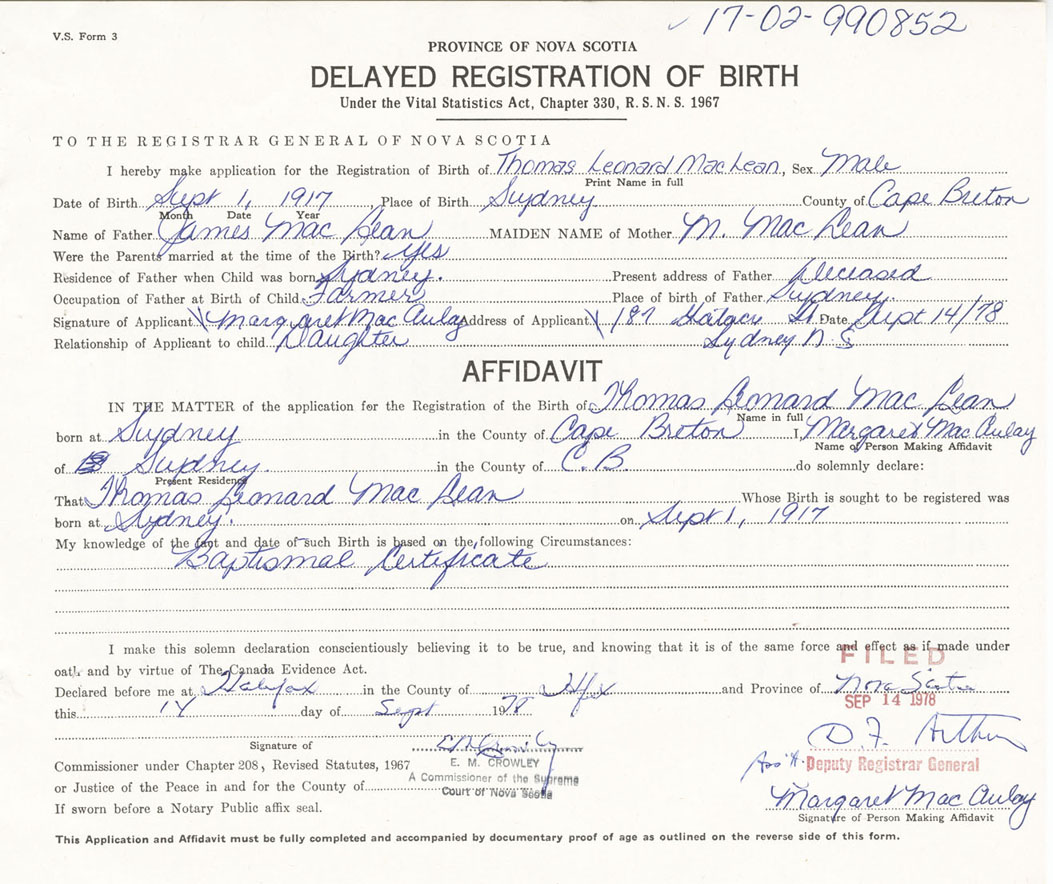 17-02-990852
V.S. Form 3
PROVINCE OF NOVA SCOTIA
DELAYED REGISTRATION OF BIRTH
Under the Vital Statistics Act, Chapter 330, R.S.N.S. 1967
TO THE REGISTRAR GENERAL OF NOVA SCOTIA
I hereby make application for the Registration of Birth of Thomas Leonard MacLean, Sex Male
Print Name in full
Date of Birth Sept 1, 1917, Place of Birth Sydney County of Cape Breton
Month Date Year
Name of Father James Mac Lean MAIDEN NAME of Mother M. Mac Lean
Were the Parents married at the time of the Birth? Yes
Residence of Father when Child was born Sydney. Present address of Father Deceased
Occupation of Father at Birth of Child Farmer Place of birth of Father Sydney.
Signature of Applicant Margaret MacAulay Address of Applicant 187 St. Date Sept 14/78
Relationship of Applicant to child Daughter Sydney N.S
AFFIDAVIT
IN THE MATTER of the application for the Registration of the Birth of Thomas Leonard Mac Lean
Name in full
born at Sydney in the County of Cape Breton I, Margaret MacAulay
Name of Person Making Affidavit
of Sydney. in the County of C.B. do solemnly declare:
Present Residence
That Thomas Leonard Mac Lean Whose Birth is sought to be registered was
born at Sydney. on Sept 1, 1917
My knowledge of the fact and date of such Birth is based on the following Circumstances:
Baptismal Certificate
I make this solemn declaration conscientiously believing it to be true, and knowing that it is of the same force and effect as if made under
oath and by virtue of The Canada Evidence Act.
FILED
Declared before me at Halifax in the County of Hfx and Province of Nova Scotia
SEP 14 1978
this 14 day of Sept 1978
D.F. Arthur
Signature of
E. M. CROWLEY
Ass't. Deputy Registrar General
Commissioner under Chapter 208, Revised Statutes, 1967
A Commissioner of the Supreme
Court of Nova Scotia
or Justice of the Peace in and for the County of
Margaret MacAulay
Signature of Person Making Affidavit
If sworn before a Notary Public affix seal.
This Application and Affidavit must be fully completed and accompanied by documentary proof of age as outlined on the reverse side of this form.